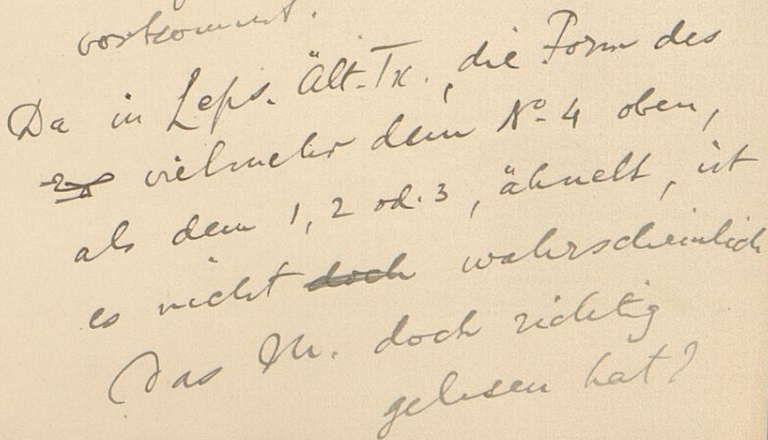 vorkommt.
Da in Leps. Ält. Tx., die Form des
vielmehr dem No. 4 oben,
als dem 1, 2 od. 3, ähnelt, ist
es nicht doch wahrscheinlich
Das M. doch richtig
gelesen hat?